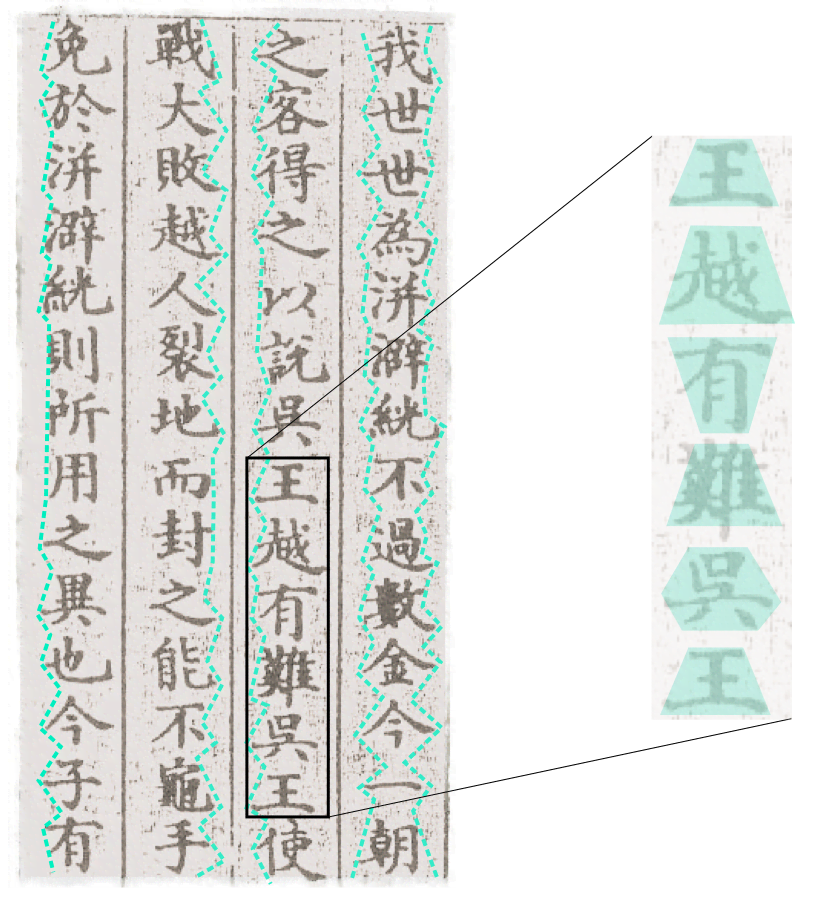 我世世為洴澼絖不過數金今一朝
之客得之以說吳王越有難吳王使
戰大敗越人裂地而封之能不龜手
免於洴澼絖則所用之異也今子有
王越有難吳王